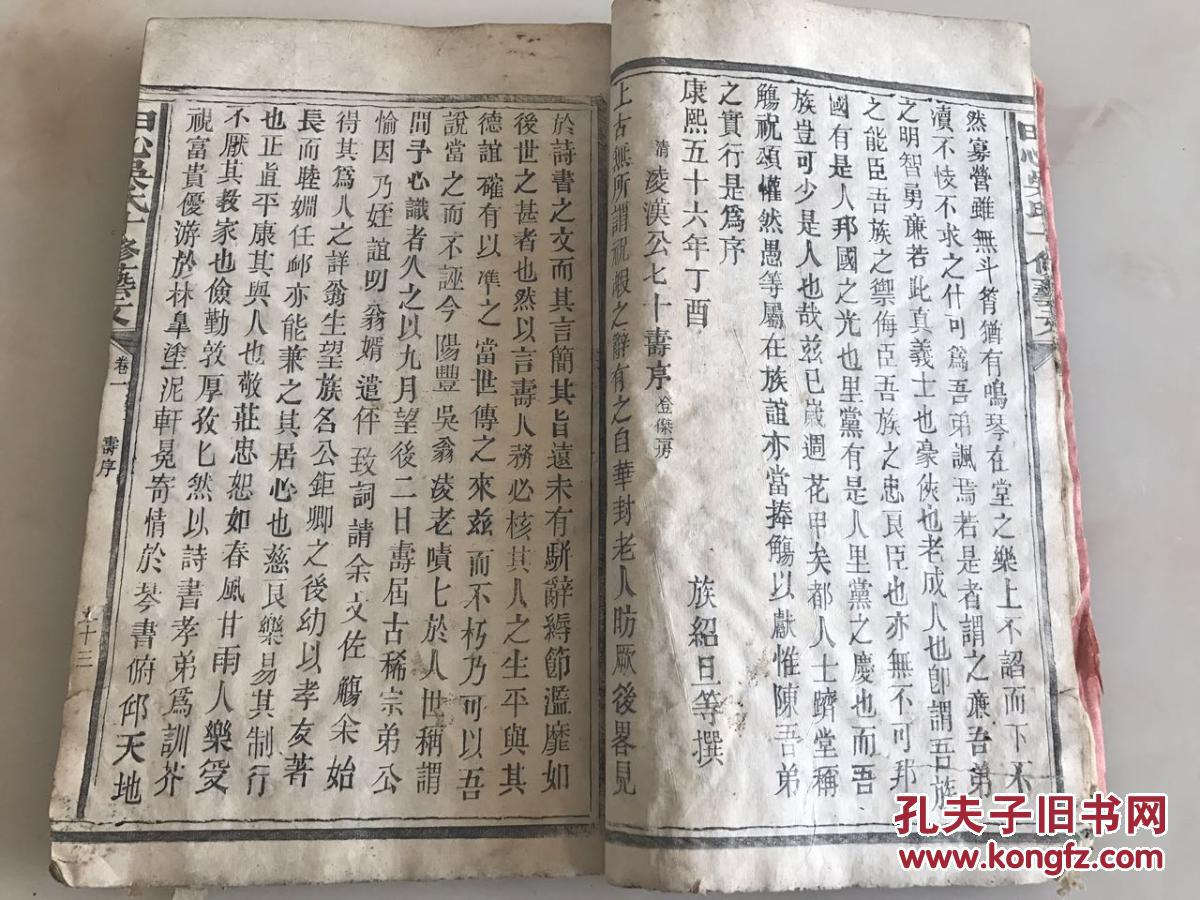 然募營雖無斗筲猶有鳴琴在堂之樂上不諂而下不
瀆不忮不求之什可為吾弟諷焉若是者謂之亷吾弟
之明智勇亷若此真義士也豪俠也老成人也卽謂吾族
之能臣吾族之禦侮臣吾族之忠良臣也亦無不可邦
國有是人邦國之光也里黨有是人里黨之慶也而吾
族豈可少是人也哉兹已歲週花甲矣都人士躋堂稱
觴祝頌懽然愚等屬在族誼亦當捧觴以獻惟陳吾弟
之實行是爲序
康熙五十六年丁酉 族紹旦等撰
清 凌漢公七十壽序 登傑房
上古無所謂祝嘏之辭有之自華封老人昉厥後畧見
於詩書之文而其言簡其旨遠未有駢辭縟節濫靡如
後世之甚者也然以言壽人務必核其人之生平與其
德誼確有以凖之當世傳之來兹而不朽乃可以吾
說當之而不誣今陽豐吳翁凌老嘖匕於人世稱謂
間予心識者久之以九月望後二日壽屆古稀宗弟公
愉因乃姪誼明翁婿遣伻致詞請余文佐觴余始
得其爲人之詳翁生望族名公鉅卿之後幼以孝友著
長而睦婣任衈亦能兼之其居心也慈良樂易其制行
也正直平康其與人也敬莊忠恕如春風甘雨人樂受
不厭其教家也儉勤敦厚孜匕然以詩書孝弟爲訓芥
視富貴優游於林臯塗泥軒冕寄情於琴書俯仰天地
田心吳氏十修藝文
卷一
壽序
九十三
孔夫子旧书网
www.kongfz.com